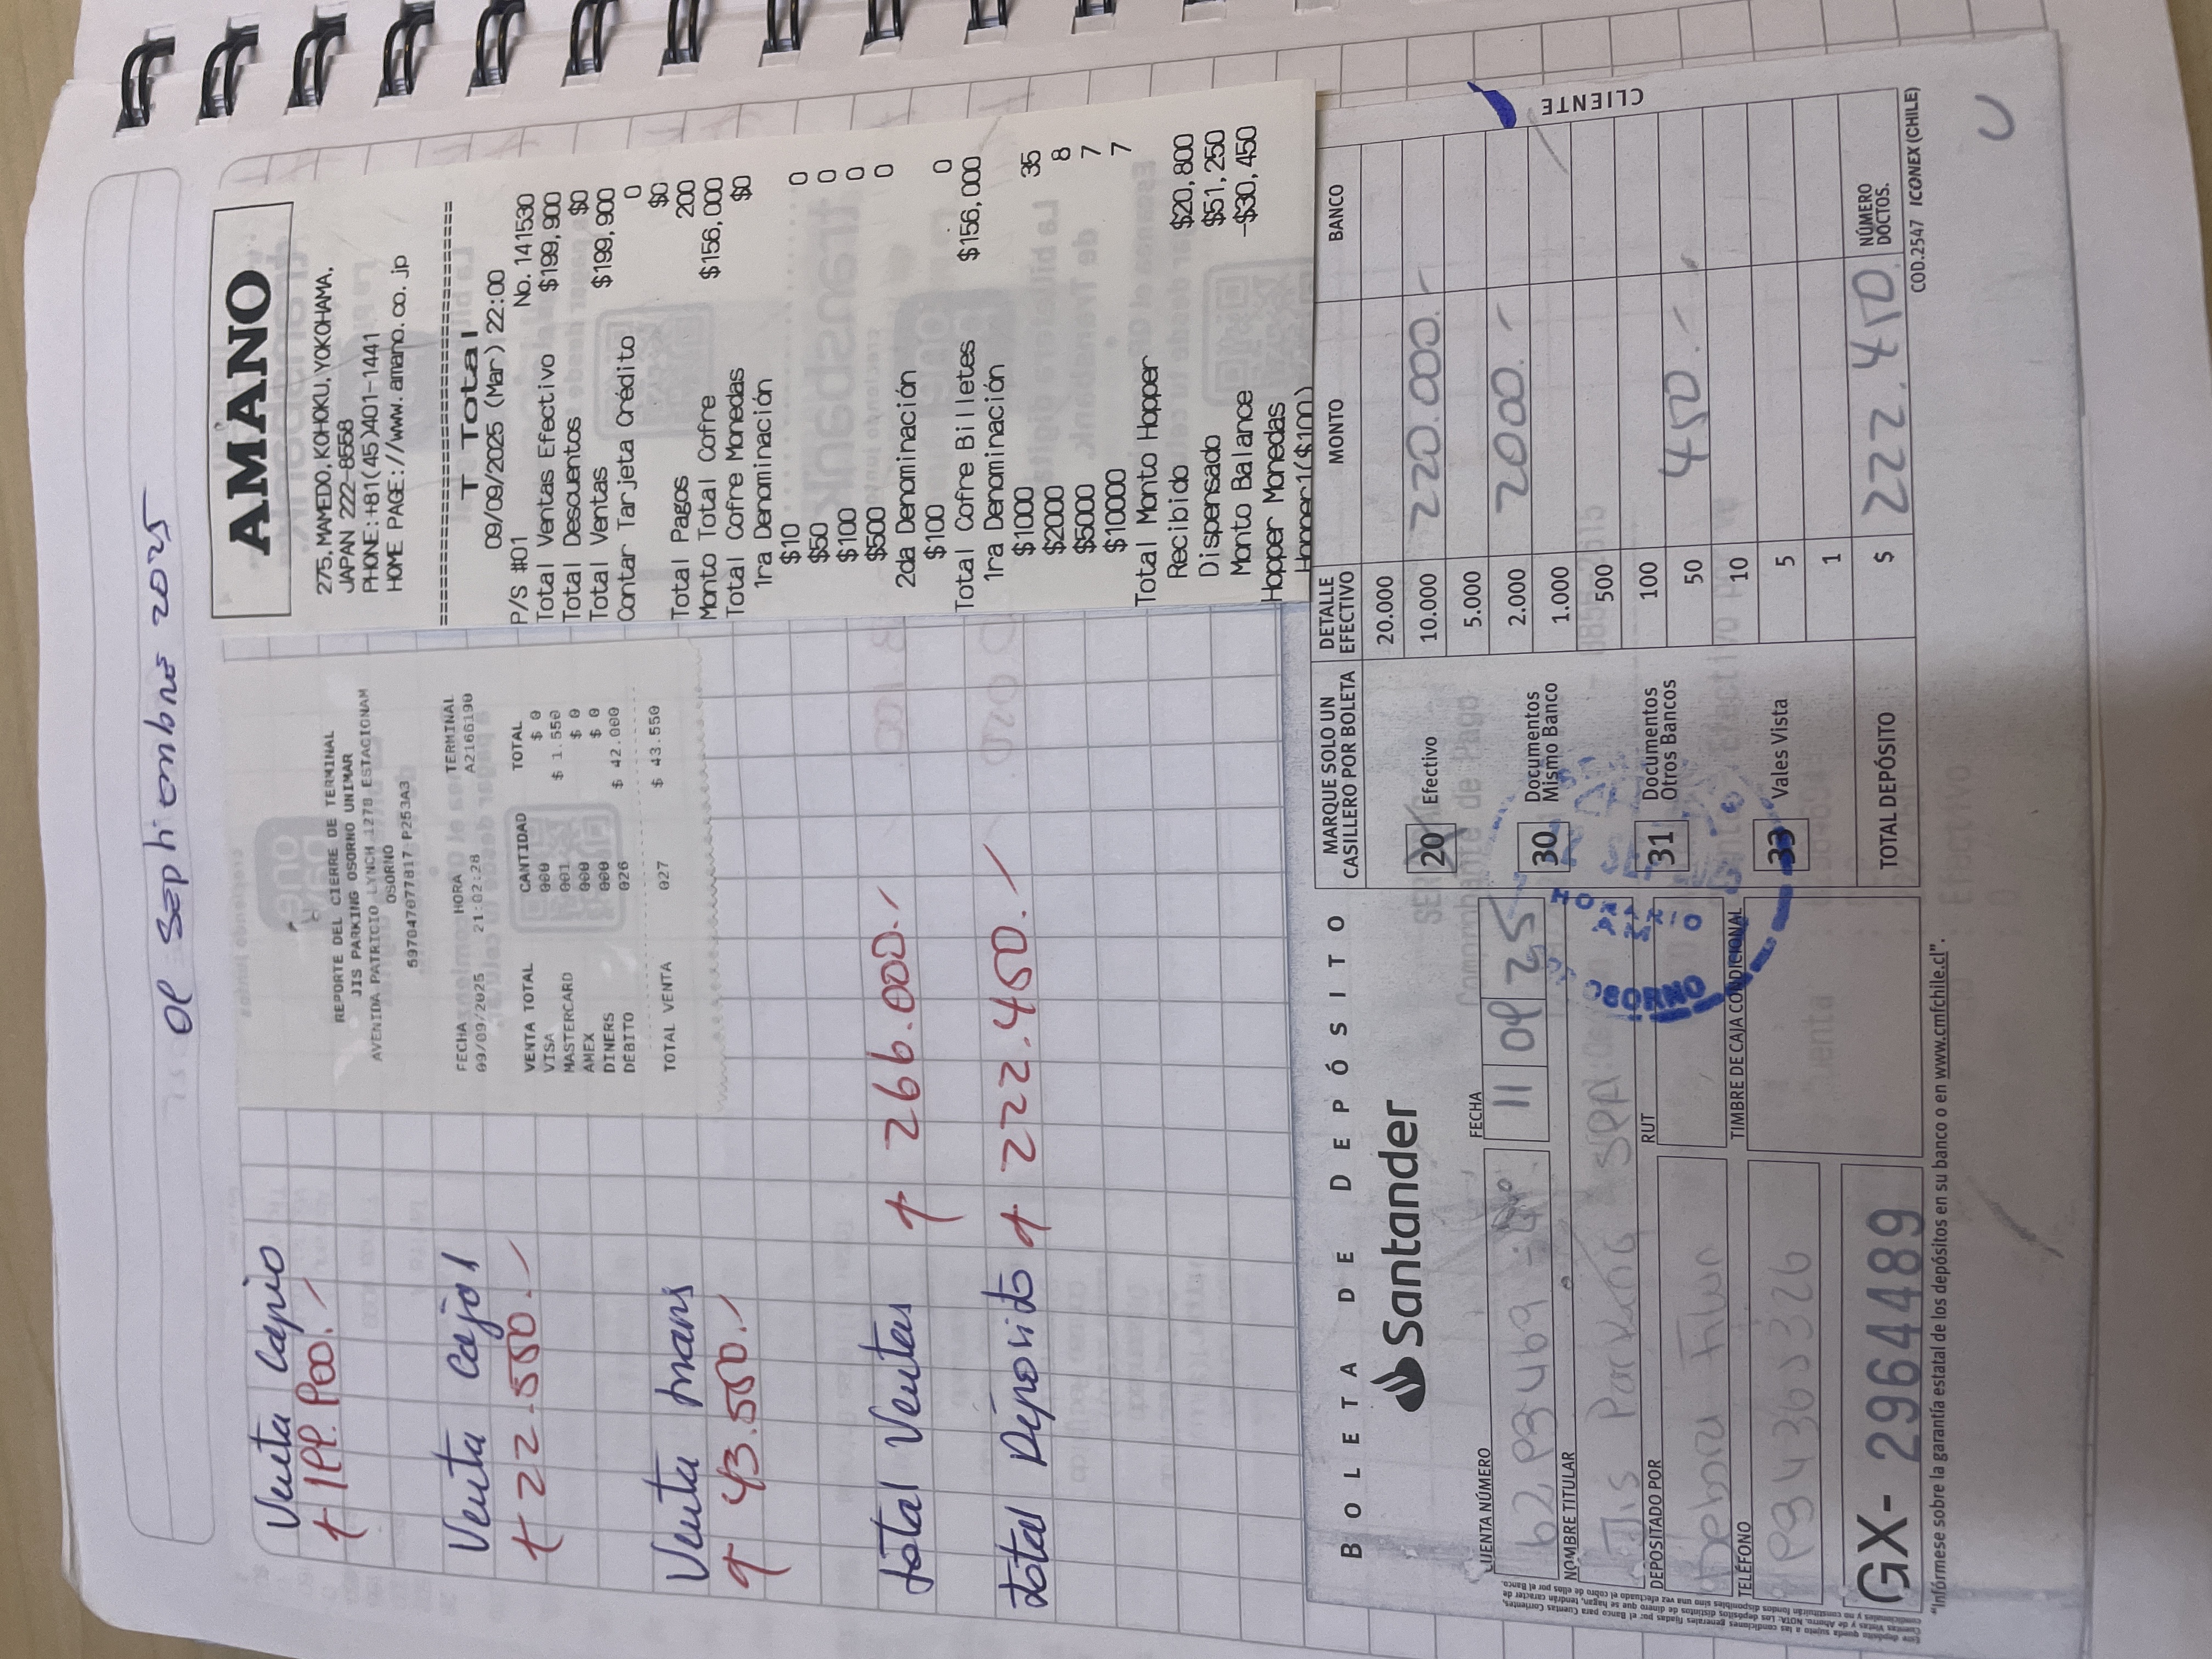 09 Septiembre 2025
Venta Cajero
199.900.-
Venta Caja 1
22.550.-
Venta trans
43.550.-
total Ventas 266.000.-
total Déposito 222.450.-
REPORTE DEL CIERRE DE TERMINAL
JIS PARKING OSORNO UNIMAR
AVENIDA PATRICIO LYNCH 1278 ESTACIONAM
OSORNO
597047077817-P253A3
FECHA HORA TERMINAL
09/09/2025 21:02:28 A2166190
VENTA TOTAL CANTIDAD TOTAL
VISA 000 $ 0
MASTERCARD 001 $ 1.550
AMEX 000 $ 0
DINERS 000 $ 0
DEBITO 026 $ 42.000
TOTAL VENTA 027 $ 43.550
AMANO
275, MAMEDO, KOHOKU, YOKOHAMA,
JAPAN 222-8558
PHONE:+81(45)401-1441
HOME PAGE://www.amano.co.jp
T Total
09/09/2025 (Mar) 22:00
P/S #01 No. 141530
Total Ventas Efectivo $199,900
Total Descuentos $0
Total Ventas $199,900
Contar Tarjeta Crédito 0
$0
Total Pagos 200
Monto Total Cofre $156,000
Total Cofre Monedas $0
1ra Denominación
$10 0
$50 0
$100 0
$500 0
2da Denominación
$100 0
Total Cofre Billetes $156,000
1ra Denominación
$1000 35
$2000 8
$5000 7
$10000 7
Total Monto Hopper
Recibido $20,800
Dispensado $51,250
Monto Balance -$30,450
Hopper Monedas
Hopper1($100)
BOLETA DE DEPÓSITO
Santander
CUENTA NÚMERO
FECHA
11 09 25
NOMBRE TITULAR
Jis Parking SPA
DEPOSITADO POR
RUT
TELÉFONO
TIMBRE DE CAJA CONDICIONAL
GX- 2964489
MARQUE SOLO UN
CASILLERO POR BOLETA
20 Efectivo
30 Documentos
Mismo Banco
31 Documentos
Otros Bancos
33 Vales Vista
DETALLE
EFECTIVO MONTO BANCO
20.000
10.000 220.000.-
5.000
2.000 2000.-
1.000
500
100
50 450.-
10
5
1
TOTAL DEPÓSITO $ 222.450 NÚMERO
DOCTOS.
CLIENTE
COD.2547 ICONEX (CHILE)
"Infórmese sobre la garantía estatal de los depósitos en su banco o en www.cmfchile.cl".